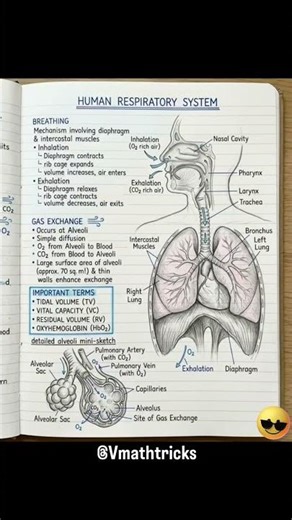 HUMAN RESPIRATORY SYSTEM
BREATHING
Mechanism involving diaphragm
& intercostal muscles
• Inhalation
Diaphragm contracts
rib cage expands
volume increases, air enters
• Exhalation
Diaphragm relaxes
rib cage contracts
volume decreases, air exits
GAS EXCHANGE
• Occurs at Alveoli
• Simple diffusion
• O₂ from Alveoli to Blood
• CO₂ from Blood to Alveoli
• Large surface area of alveoli
(approx. 70 sq.m) & thin
walls enhance exchange
IMPORTANT TERMS
• TIDAL VOLUME (TV)
• VITAL CAPACITY (VC)
• RESIDUAL VOLUME (RV)
• OXYHEMOGLOBIN (HbO₂)
detailed alveoli mini-sketch
Inhalation
(O₂ rich air)
Nasal Cavity
Exhalation
(CO₂ rich air)
Pharynx
Larynx
Trachea
Intercostal
Muscles
Bronchus
Left
Lung
Right
Lung
O₂
Exhalation
Diaphragm
Alveolar
Sac
Pulmonary Artery
(with CO₂)
Pulmonary Vein
(with O₂)
O₂
O₂
Capillaries
Alveolus
Alveolar Sac
Site of Gas Exchange
CO₂
O₂
@Vmathtricks